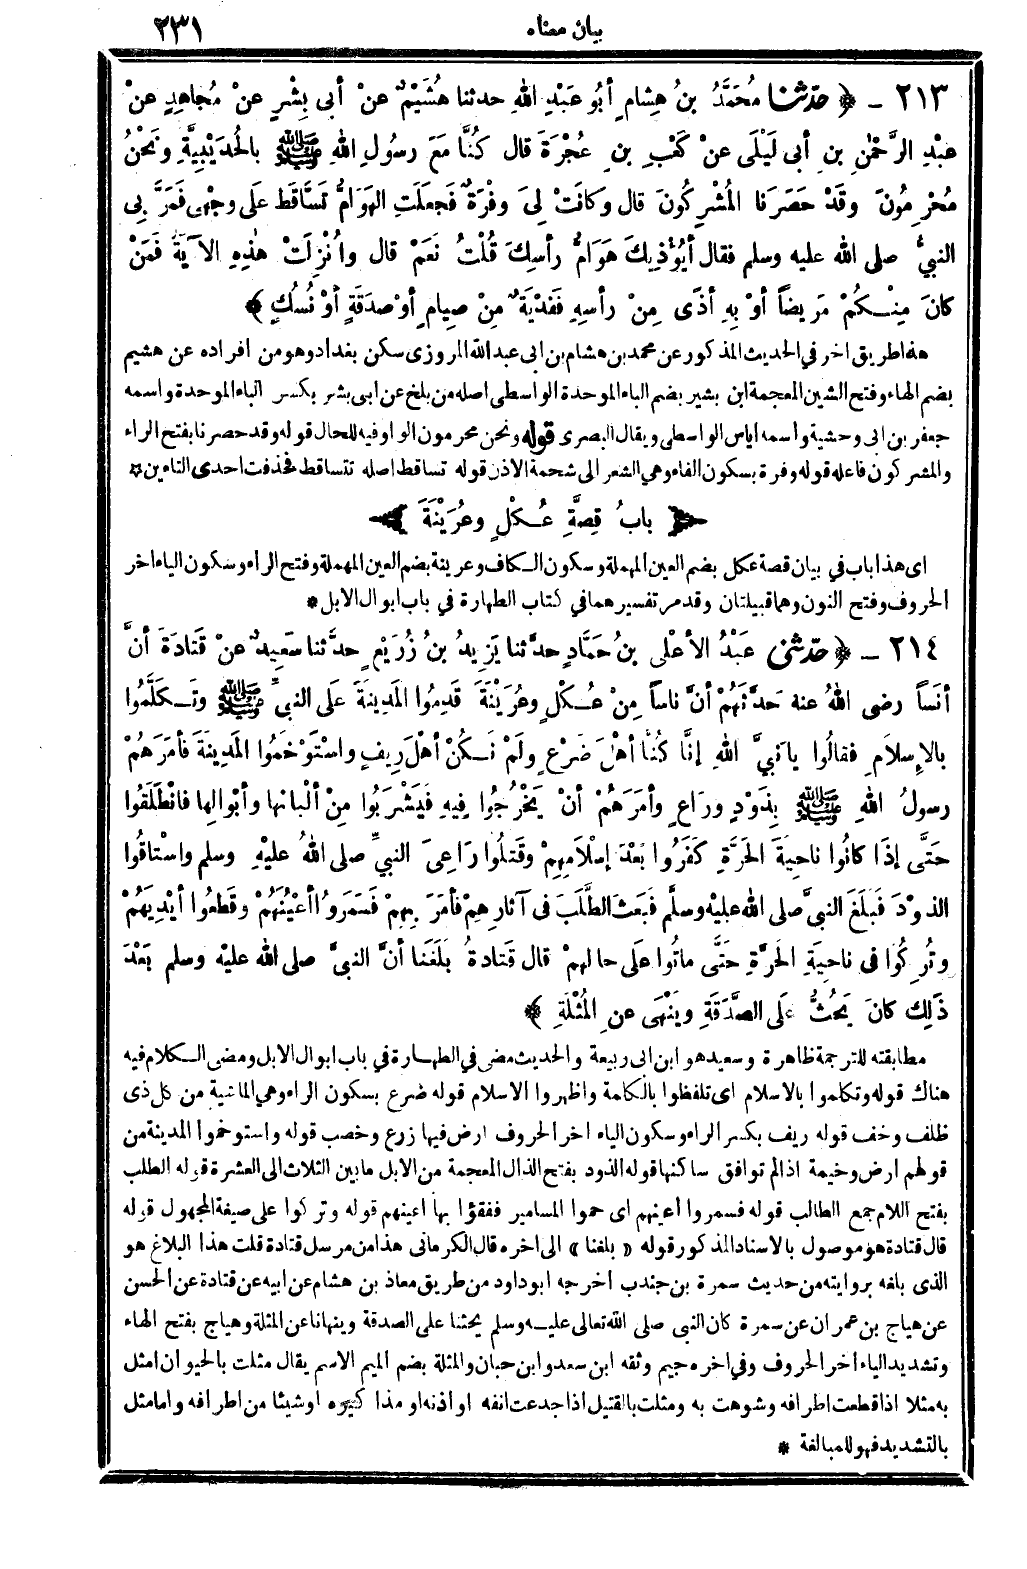 بيان معناه ٢٣١
٢١٣ - ﴿ حدّثنا مُحَمَّدُ بنُ هِشامٍ أبُو عَبْدِ اللهِ حدثنا هُشَيْمٌ عنْ أبى بِشْرٍ عنْ مُجاهِدٍ عنْ
عبْدِ الرَّحْمٰنِ بنِ أبى لَيْلَى عنْ كَعْبِ بنِ عُجْرَةَ قال كُنَّا مَعَ رسولِ اللهِ ﷺ بالحُدَيْبِيَّةِ ونَحْنُ
مُحْرِمُونَ وقَدْ حصَرَنا المُشْرِكُونَ قال وكانَتْ لِىَ وفْرَةٌ فَجعَلَتِ الهَوَامُّ تَسَّاقَط علَى وجْهِى فَمَرَّ بِى
النبيُّ صلى الله عليه وسلم فقال أيُؤْذِيكَ هَوَامُّ رأسِكَ قُلْتُ نَعَمْ قال وأُنْزِلَتْ هذِهِ الآيَةُ فَمَنْ
كانَ مِنْكُمْ مَرِيضاً أوْ بِهِ أذًى مِنْ رأسِهِ فَفِدْيَةٌ مِنْ صِيامٍ أوْ صدَقَةٍ أوْ نُسُكٍ ﴾
هذا طريق اخر في الحديث المذكور عن محمد بن هشام بن ابى عبد الله المروزى سكن بغداد وهو من افراده عن هشيم
بضم الهاء وفتح الشين المعجمة ابن بشير بضم الباء الموحدة الواسطى اصله من بلخ عن ابى بشر بكسر الباء الموحدة واسمه
جعفر بن ابى وحشية واسمه اياس الواسطى ويقال البصرى قوله ونحن محرمون الواو فيه للحال قوله وقد حصرنا بفتح الراء
والمشركون فاعله قوله وفرة بسكون الفاء وهي الشعر الى شحمة الاذن قوله تساقط اصله تتساقط فحذفت احدى التاءين *
﴿ بابُ قِصَّةِ عُكْلٍ وعُرَيْنَةَ ﴾
اى هذا باب في بيان قصة عكل بضم العين المهملة وسكون الكاف وعرينة بضم العين المهملة وفتح الراء وسكون الياء اخر
الحروف وفتح النون وهما قبيلتان وقد مر تفسيرهما في كتاب الطهارة في باب ابوال الابل *
٢١٤ - ﴿ حدّثنى عَبْدُ الأعْلى بنُ حَمَّادٍ حدَّثنا يَزِيدُ بنُ زُرَيْعٍ حدَّثنا سَعِيدٌ عنْ قَتادَةَ أنَّ
أنَساً رضى اللهُ عنه حَدَّثَهُمْ أنَّ ناساً مِنْ عُكْلٍ وعُرَيْنَةَ قَدِمُوا المَدِينَةَ علَى النبيِّ ﷺ وتَكَلَّمُوا
بالإِسلامِ فقالُوا يانَبِيَّ اللهِ إنَّا كُنَّا أهْلَ ضَرْعٍ ولَمْ نَكُنْ أهْلَ رِيفٍ واسْتَوْخَمُوا المَدِينَةَ فأمَرَهُمْ
رسولُ اللهِ ﷺ بِذَوْدٍ ورَاعٍ وأمَرَهُمْ أنْ يَخْرُجُوا فِيهِ فَيَشْرَبُوا مِنْ ألْبانِها وأبْوالِها فانْطَلَقُوا
حَتَّى إذَا كانُوا ناحِيَةَ الحَرَّةِ كَفَرُوا بَعْدَ إسْلاَمِهِمْ وقَتلُوا رَاعِىَ النبيِّ صلى اللهُ عليْهِ وسلم واسْتاقُوا
الذوْدَ فَبلَغَ النبيَّ صلى الله عليْه وسلَّم فبَعثَ الطَّلَبَ فى آثارِهِمْ فأمَرَ بِهِمْ فَسَمَرُوا أعْيُنَهُمْ وقَطعُوا أيْدِيَهُمْ
وتُرِكُوا فى ناحِيَةِ الحَرَّةِ حَتَّى ماتُوا علَى حالِهِمْ قال قَتادةُ بَلَغَنا أنَّ النبيَّ صلى الله عليْه وسلم بَعْدَ
ذَلِكَ كانَ يَحُثُّ علَى الصَّدَقَةِ ويَنْهَى عنِ المُثْلَةِ ﴾
مطابقته للترجمة ظاهرة وسعيد هو ابن ابى ربيعة والحديث مضى في الطهارة في باب ابوال الابل ومضى الكلام فيه
هناك قوله وتكلموا بالاسلام اى تلفظوا بالكلمة واظهروا الاسلام قوله ضرع بسكون الراء وهي الماشية من كل ذى
ظلف وخف قوله ريف بكسر الراء وسكون الياء اخر الحروف ارض فيها زرع وخصب قوله واستوخموا المدينة من
قولهم ارض وخيمة اذا لم توافق ساكنها قوله الذود بفتح الذال المعجمة من الابل ما بين الثلاث الى العشرة قوله الطلب
بفتح اللام جمع الطالب قوله فسمروا أعينهم اى حموا المسامير ففقؤا بها أعينهم قوله وتركوا على صيغة المجهول قوله
قال قتادة هو موصول بالاسناد المذكور قوله « بلغنا » الى اخره قال الكرمانى هذا من مرسل قتادة قلت هذا البلاغ هو
الذى بلغه بروايته من حديث سمرة بن جندب أخرجه ابو داود من طريق معاذ بن هشام عن ابيه عن قتادة عن الحسن
عن هياج بن عمران عن سمرة كان النبى صلى الله تعالى عليه وسلم يحثنا على الصدقة وينهانا عن المثلة وهياج بفتح الهاء
وتشديد الياء اخر الحروف وفي اخره جيم وثقه ابن سعد وابن حبان والمثلة بضم الميم الاسم يقال مثلت بالحيوان امثل
به مثلا اذا قطعت اطرافه وشوهت به ومثلت بالقتيل اذا جدعت انفه او اذنه او مذا كيره او شيئا من اطرافه واما مثل
بالتشديد فهو للمبالغة *